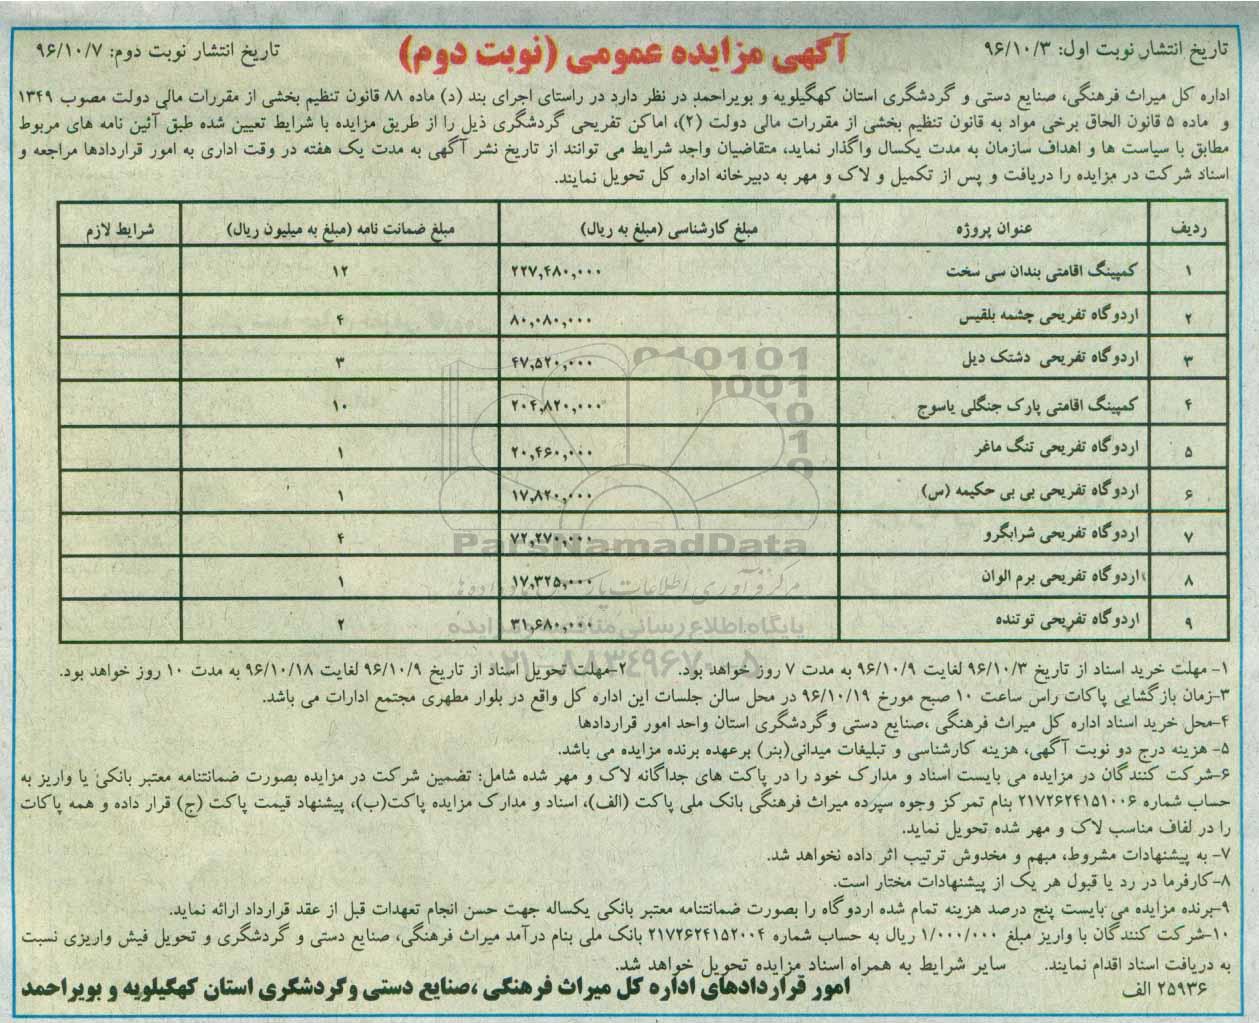 تاریخ انتشار نوبت اول: ۹۶/۱۰/۳
آگهی مزایده عمومی (نوبت دوم)
تاریخ انتشار نوبت دوم: ۹۶/۱۰/۷
اداره کل میراث فرهنگی، صنایع دستی و گردشگری استان کهگیلویه و بویراحمد در نظر دارد در راستای اجرای بند (د) ماده ۸۸ قانون تنظیم بخشی از مقررات مالی دولت مصوب ۱۳۴۹
و ماده ۵ قانون الحاق برخی مواد به قانون تنظیم بخشی از مقررات مالی دولت (۲)، اماکن تفریحی گردشگری ذیل را از طریق مزایده با شرایط تعیین شده طبق آئین نامه های مربوط
مطابق با سیاست ها و اهداف سازمان به مدت یکسال واگذار نماید، متقاضیان واجد شرایط می توانند از تاریخ نشر آگهی به مدت یک هفته در وقت اداری به امور قراردادها مراجعه و
اسناد شرکت در مزایده را دریافت و پس از تکمیل و لاک و مهر به دبیرخانه اداره کل تحویل نمایند.
ردیف عنوان پروژه مبلغ کارشناسی (مبلغ به ریال) مبلغ ضمانت نامه (مبلغ به میلیون ریال) شرایط لازم
۱ کمپینگ اقامتی بندان سی سخت ۲۲۷,۴۸۰,۰۰۰ ۱۲
۲ اردوگاه تفریحی چشمه بلقیس ۸۰,۰۸۰,۰۰۰ ۴
۳ اردوگاه تفریحی دشتک دیل ۴۷,۵۲۰,۰۰۰ ۳
۴ کمپینگ اقامتی پارک جنگلی یاسوج ۲۰۴,۸۲۰,۰۰۰ ۱۰
۵ اردوگاه تفریحی تنگ ماغر ۲۰,۴۶۰,۰۰۰ ۱
۶ اردوگاه تفریحی بی بی حکیمه (س) ۱۷,۸۲۰,۰۰۰ ۱
۷ اردوگاه تفریحی شرابگرو ۷۲,۲۷۰,۰۰۰ ۴
۸ اردوگاه تفریحی برم الوان ۱۷,۳۲۵,۰۰۰ ۱
۹ اردوگاه تفریحی توتنده ۳۱,۶۸۰,۰۰۰ ۲
ParsNamadData
پایگاه اطلاع رسانی مناقصه و مزایده
۱- مهلت خرید اسناد از تاریخ ۹۶/۱۰/۳ لغایت ۹۶/۱۰/۹ به مدت ۷ روز خواهد بود. ۲-مهلت تحویل اسناد از تاریخ ۹۶/۱۰/۹ لغایت ۹۶/۱۰/۱۸ به مدت ۱۰ روز خواهد بود.
۳-زمان بازگشایی پاکات راس ساعت ۱۰ صبح مورخ ۹۶/۱۰/۱۹ در محل سالن جلسات این اداره کل واقع در بلوار مطهری مجتمع ادارات می باشد.
۴-محل خرید اسناد اداره کل میراث فرهنگی ،صنایع دستی وگردشگری استان واحد امور قراردادها
۵- هزینه درج دو نوبت آگهی، هزینه کارشناسی و تبلیغات میدانی(بنر) برعهده برنده مزایده می باشد.
۶-شرکت کنندگان در مزایده می بایست اسناد و مدارک خود را در پاکت های جداگانه لاک و مهر شده شامل: تضمین شرکت در مزایده بصورت ضمانتنامه معتبر بانکی یا واریز به
حساب شماره ۲۱۷۲۶۲۴۱۵۱۰۰۶ بنام تمرکز وجوه سپرده میراث فرهنگی بانک ملی پاکت (الف)، اسناد و مدارک مزایده پاکت(ب)، پیشنهاد قیمت پاکت (ج) قرار داده و همه پاکات
را در لفاف مناسب لاک و مهر شده تحویل نماید.
۷- به پیشنهادات مشروط، مبهم و مخدوش ترتیب اثر داده نخواهد شد.
۸-کارفرما در رد یا قبول هر یک از پیشنهادات مختار است.
۹-برنده مزایده می بایست پنج درصد هزینه تمام شده اردوگاه را بصورت ضمانتنامه معتبر بانکی یکساله جهت حسن انجام تعهدات قبل از عقد قرارداد ارائه نماید.
۱۰-شرکت کنندگان با واریز مبلغ ۱/۰۰۰/۰۰۰ ریال به حساب شماره ۲۱۷۲۶۲۴۱۵۲۰۰۴ بانک ملی بنام درآمد میراث فرهنگی، صنایع دستی و گردشگری و تحویل فیش واریزی نسبت
به دریافت اسناد اقدام نمایند. سایر شرایط به همراه اسناد مزایده تحویل خواهد شد.
۲۵۹۳۶ الف
امور قراردادهای اداره کل میراث فرهنگی ،صنایع دستی وگردشگری استان کهگیلویه و بویراحمد